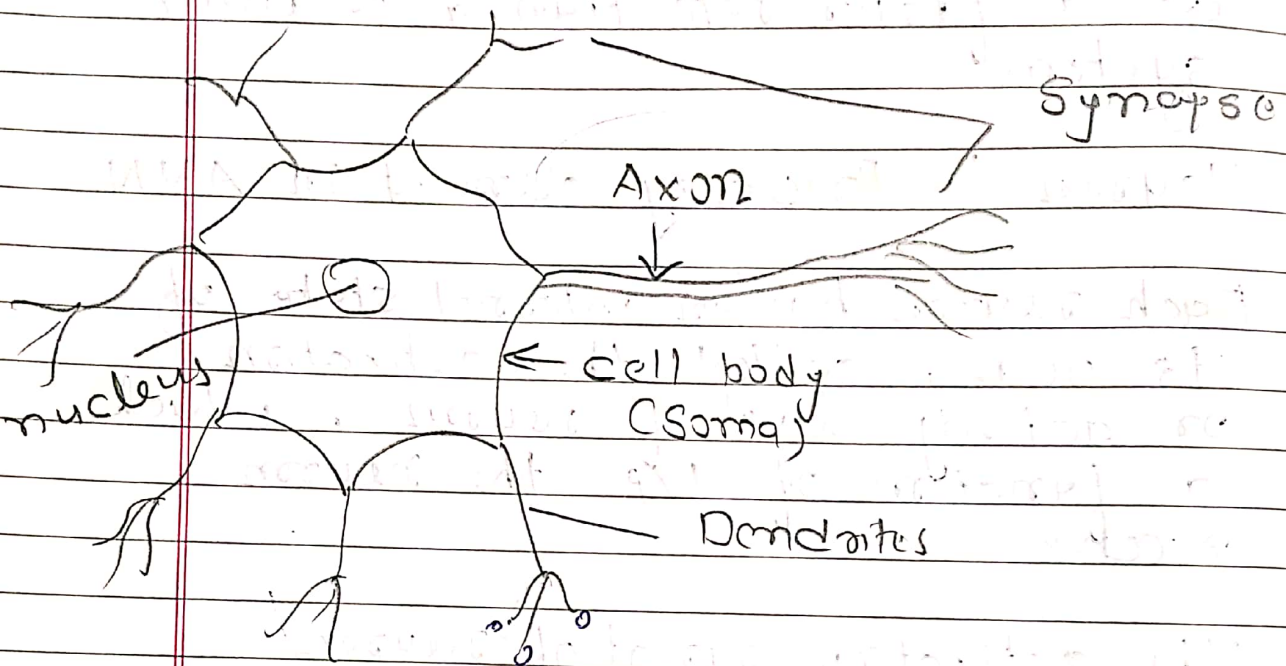 Synapse
Axon
nucleus
cell body
(Soma)
Dendrites